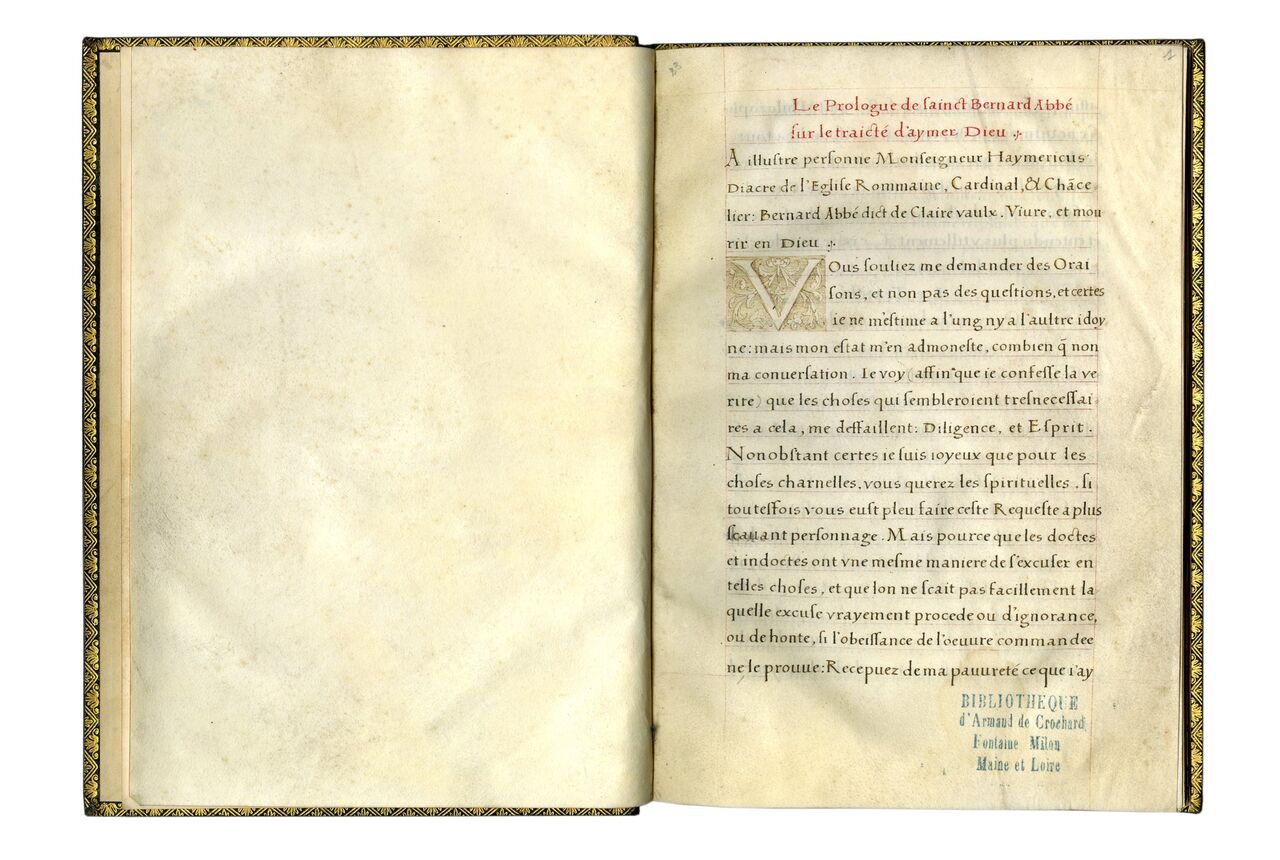 Le Prologue de sainct Bernard Abbé
sur le traicté d'aymer Dieu
A illustre personne Monseigneur Haymericus
Diacre de l'Eglise Rommaine, Cardinal, & Chāce
lier: Bernard Abbé dict de Claire vaulx. Viure, et mou
rir en Dieu
VOus souliez me demander des Orai
sons, et non pas des questions, et certes
ie ne m'estime a l'ung ny a l'aultre idoy
ne: mais mon estat m'en admoneste, combien q̄ non
ma conuersation. Ie voy (affin que ie confesse la ve
rite) que les choses qui sembleroient tresnecessai
res a cela, me deffaillent: Diligence, et Esprit.
Nonobstant certes ie suis ioyeux que pour les
choses charnelles, vous querez les spirituelles, si
toutesfois vous eust pleu faire ceste Requeste a plus
scauant personnage. Mais pource que les doctes
et indoctes ont vne mesme maniere de s'excuser en
telles choses, et que lon ne scait pas facillement la
quelle excuse vrayement procede ou d'ignorance,
ou de honte, si l'obeissance de l'oeuure commandee
ne le prouue: Recepuez de ma pauureté ce que i'ay
BIBLIOTHEQUE
d'Armand de Crochard
Fontaine Milon
Maine et Loire